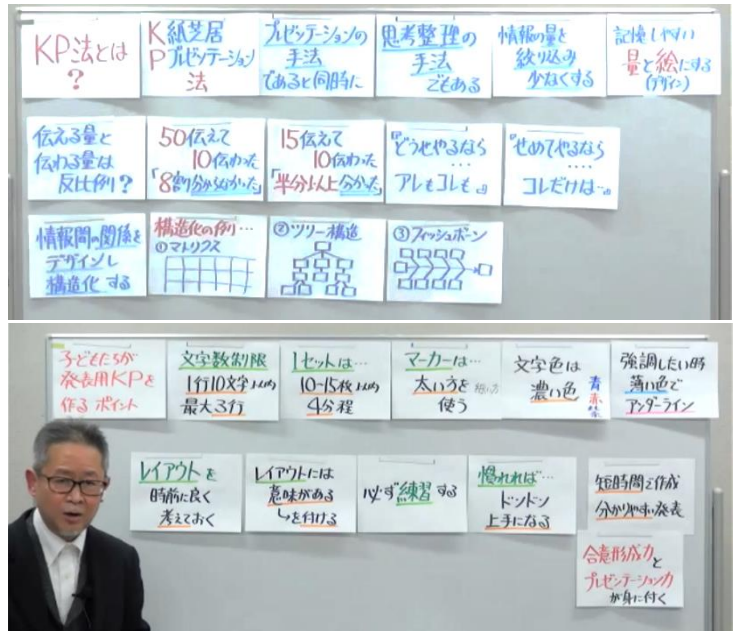 KP法とは
?
K紙芝居
Pプレゼンテーション
法
プレゼンテーションの
手法
であると同時に
思考整理の
手法
でもある
情報の量を
絞り込み
少なくする
記憶しやすい
量と絵にする
(デザイン)
伝える量と
伝わる量は
反比例?
50伝えて
10伝わった
「8割分からなかった」
15伝えて
10伝わった
「半分以上分かった」
『どうせやるなら
‥‥
アレもコレも』
『せめてやるなら
‥‥
コレだけは…』
情報間の関係を
デザインし
構造化する
構造化の例…
①マトリクス
②ツリー構造
③フィッシュボーン
子どもたちが
発表用KPを
作るポイント
文字数制限
1行10文字以内
最大3行
1セットは…
10-15枚以内
4分程
マーカーは…
太い方を
使う
文字色は
濃い色
青
赤
強調したい時
薄い色で
アンダーライン
レイアウトを
事前に良く
考えておく
レイアウトには
意味がある
↳を付ける
必ず練習する
慣れれば…
ドンドン
上手になる
短時間で作成
分かりやすい発表
合意形成力と
プレゼンテーション力
が身に付く